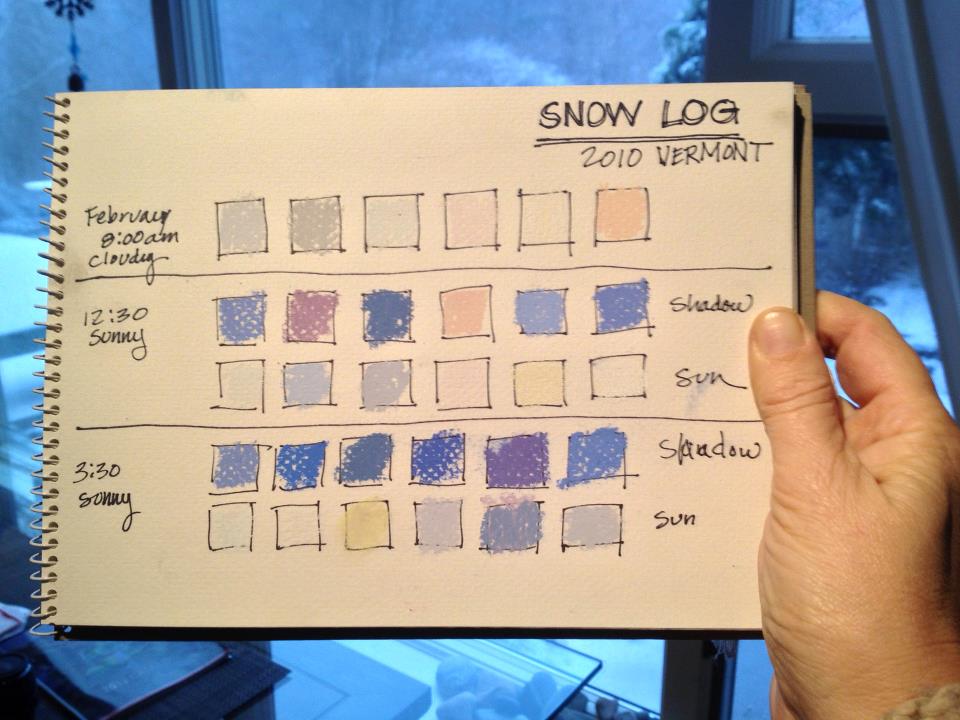 SNOW LOG
2010 VERMONT
February
8:00am
cloudy
12:30
Sunny
Shadow
Sun
3:30
Sonny
Shadow
Sun